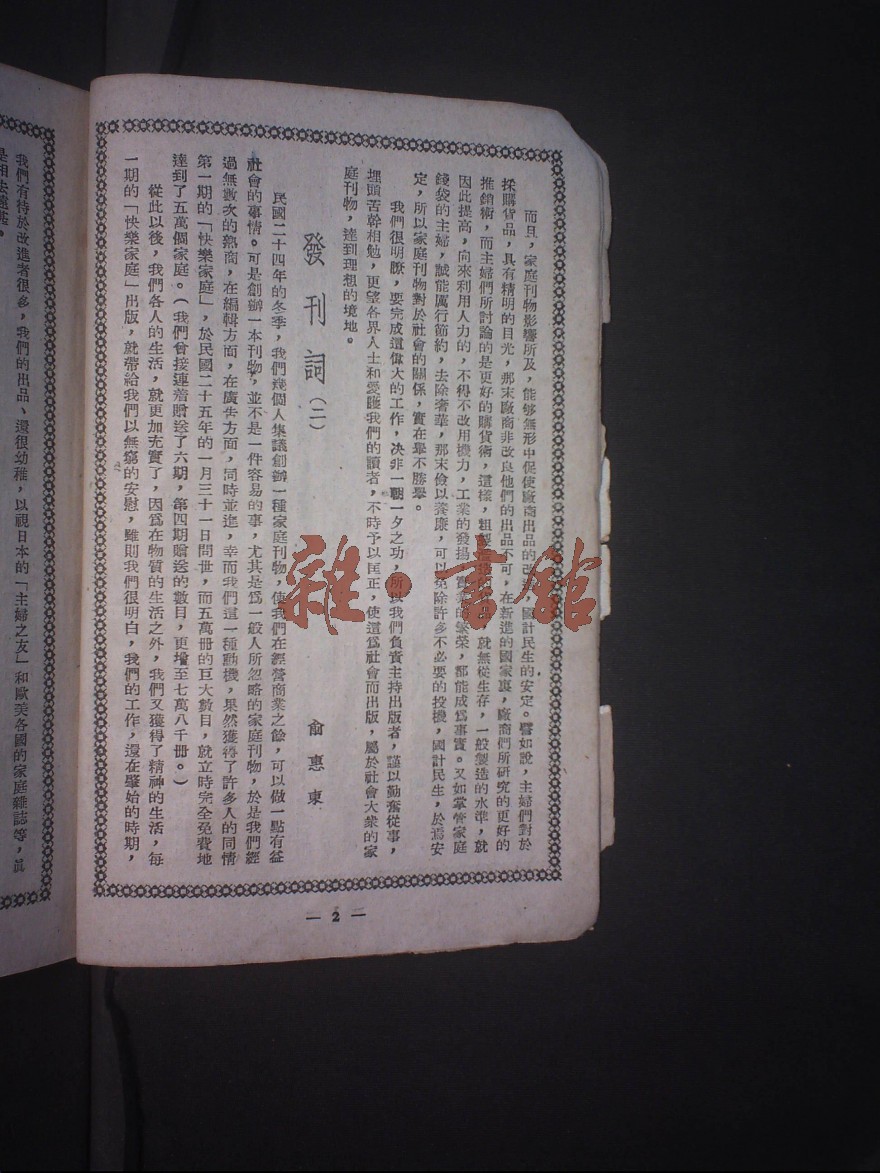 而且，家庭刊物影響所及，能够無形中促使廠商出品的改進，國計民生的安定。譬如說，主婦們對於
採購貨品，具有精明的目光，那末廠商非改良他們的出品不可，在新進的國家裏，廠商們所研究的更好的
推銷術，而主婦們所討論的是更好的購貨術，這樣，粗製
就無從生存，一般製造的水準，就
因此提高，向來利用人力的，不得不改用機力，工業的發揚
繁榮，都能成爲事實。又如掌管家庭
錢袋的主婦，誠能厲行節約，去除奢華，那末儉以養廉，可以免除許多不必要的投機，國計民生，於焉安
定，所以家庭刊物對於社會的關係，實在舉不勝舉。
我們很明瞭，要完成這偉大的工作，決非一朝一夕之功，所以我們負責主持出版者，謹以勤奮從事，
埋頭苦幹相勉，更望各界人士和愛護我們的讀者，不時予以匡正，使這爲社會而出版，屬於社會大衆的家
庭刊物，達到理想的境地。
發刊詞（二）
俞惠東
民國二十四年的冬季，我們幾個人集議創辦一種家庭刊物，使我們在經營商業之餘，可以做一點有益
社會的事情。可是創辦一本刊物，並不是一件容易的事，尤其是爲一般人所忽略的家庭刊物，於是我們經
過無數次的熟商，在編輯方面，在廣告方面，同時並進，幸而我們這一種動機，果然獲得了許多人的同情
第一期的「快樂家庭」，於民國二十五年的一月三十一日問世，而五萬冊的巨大數目，就立時完全免費地
達到了五萬個家庭。（我們曾接連着贈送了六期，第四期贈送的數目，更增至七萬八千冊。）
從此以後，我們各人的生活，就更加充實了，因爲在物質的生活之外，我們又獲得了精神的生活，每
一期的「快樂家庭」出版，就帶給我們以無窮的安慰，雖則我們很明白，我們的工作，還在肇始的時期，
— 2 —
我們有待於改進者很多，我們的出品、還很幼稚，以視日本的「主婦之友」和歐美各國的家庭雜誌等，眞
是相去遠甚。
雜·書館